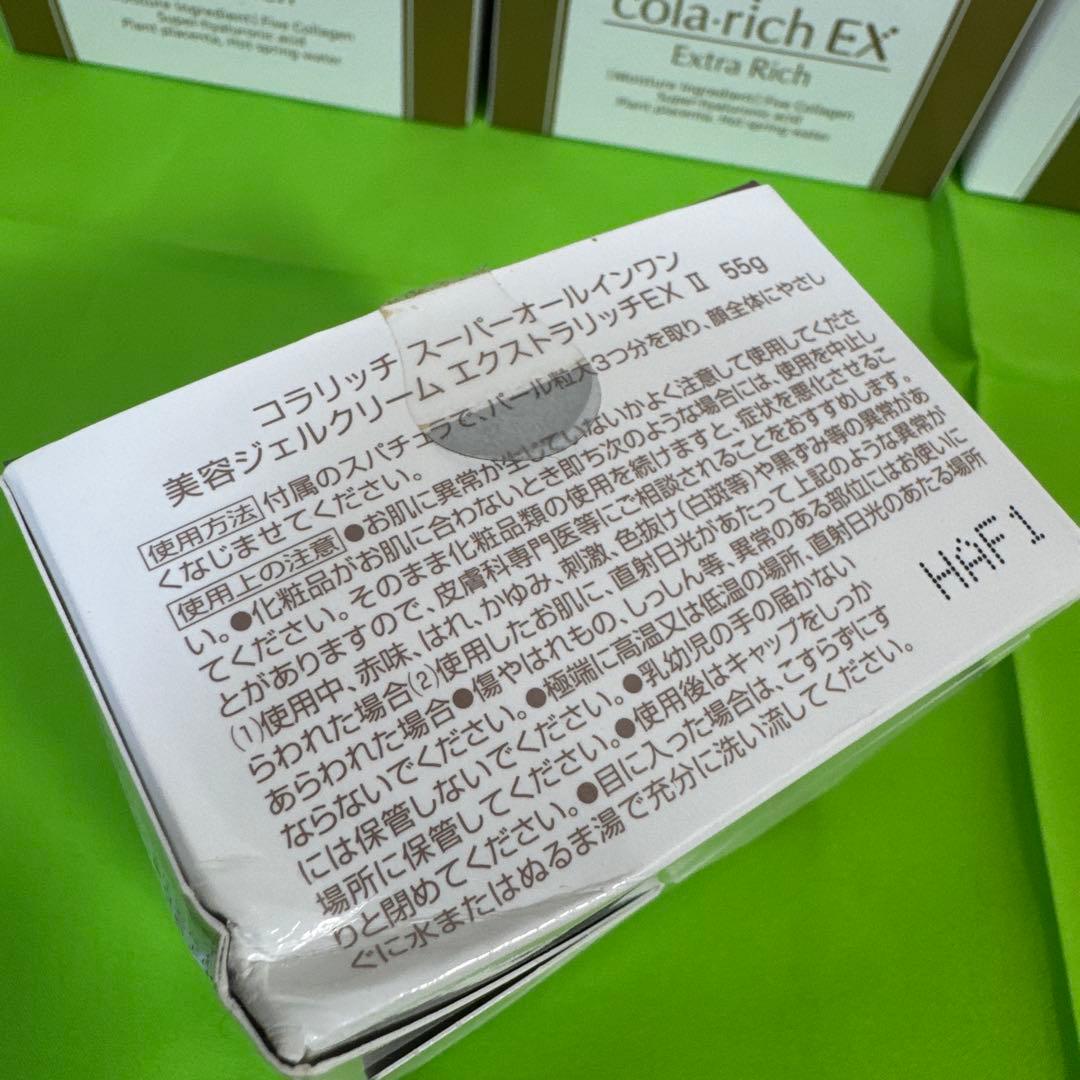 Moisture Ingredient Five Collagen
Super hyaluronic acid
Plant placenta, Hot-spring-water
Cola·rich EX
Extra Rich
Moisture Ingredient Five Collagen
Super hyaluronic acid
Plant placenta, Hot-spring-water
コラリッチ スーパーオールインワン
美容ジェルクリーム エクストラリッチEX Ⅱ 55g
使用方法 付属のスパチュラで、パール粒大3つ分を取り、顔全体にやさし
くなじませてください。
使用上の注意 ●お肌に異常が生じていないかよく注意して使用してくださ
い。●化粧品がお肌に合わないとき即ち次のような場合には、使用を中止し
てください。そのまま化粧品類の使用を続けますと、症状を悪化させるこ
とがありますので、皮膚科専門医等にご相談されることをおすすめします。
(1)使用中、赤味、はれ、かゆみ、刺激、色抜け(白斑等)や黒ずみ等の異常があ
らわれた場合(2)使用したお肌に、直射日光があたって上記のような異常が
あらわれた場合●傷やはれもの、しっしん等、異常のある部位にはお使いに
ならないでください。●極端に高温又は低温の場所、直射日光のあたる場所
には保管しないでください。●乳幼児の手の届かない
場所に保管してください。●使用後はキャップをしっか
りと閉めてください。●目に入った場合は、こすらずにす
ぐに水またはぬるま湯で充分に洗い流してください。
HAF1